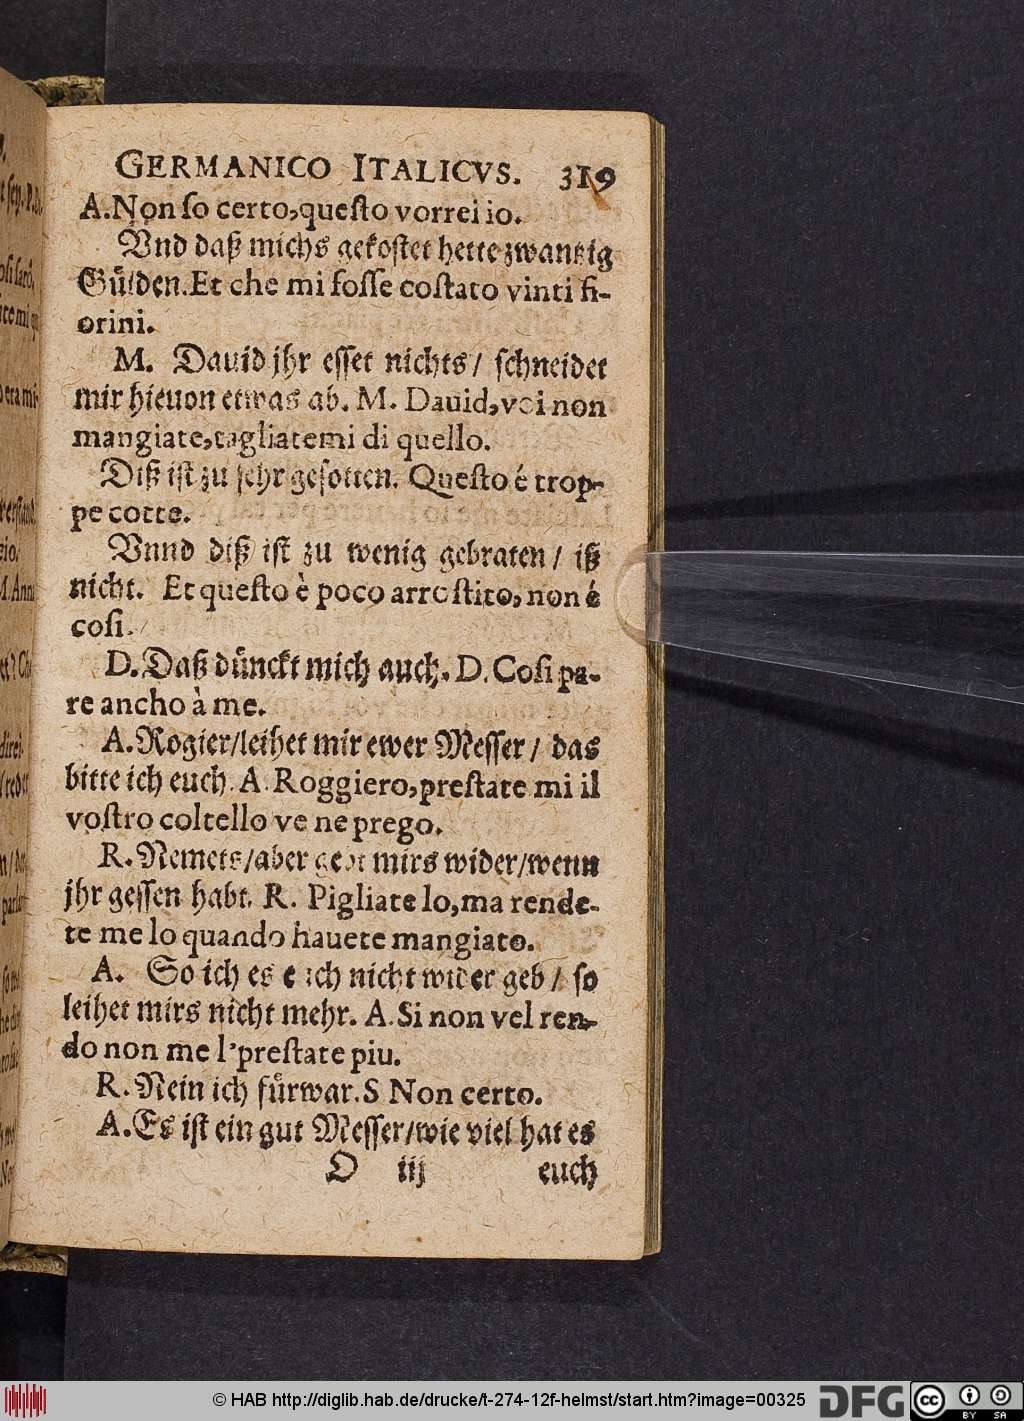 GERMANICO ITALICVS. 319
A. Non ſo certo, queſto vorrei io.
Vnd daß michs gekoſtet hette zwantzig
Guͤlden. Et che mi foſſe coſtato vinti fi-
orini.
M. Dauid jhr eſſet nichts / ſchneidet
mir hieuon etwas ab. M. Dauid, voi non
mangiate, tagliatemi di quello.
Diß iſt zu ſehr geſotten. Queſto é trop-
pe cotte.
Vnnd diß iſt zu wenig gebraten / iß
nicht. Et queſto è poco arroſtito, non é
coſi.
D. Daß duͤnckt mich auch. D. Coſi pa-
re ancho à me.
A. Rogier / leihet mir ewer Meſſer / das
bitte ich euch. A. Roggiero, preſtate mi il
voſtro coltello ve ne prego.
R. Nemets / aber gebt mirs wider / wenn
jhr geſſen habt. R. Pigliate lo, ma rende-
te me lo quando hauete mangiato.
A. So ich es e ich nicht wider geb / ſo
leihet mirs nicht mehr. A. Si non vel ren-
do non me l'preſtate piu.
R. Nein ich fuͤrwar. S Non certo.
A. Es iſt ein gut Meſſer / wie viel hat es
O iij euch
© HAB http://diglib.hab.de/drucke/t-274-12f-helmst/start.htm?image=00325
DFG
cc BY SA